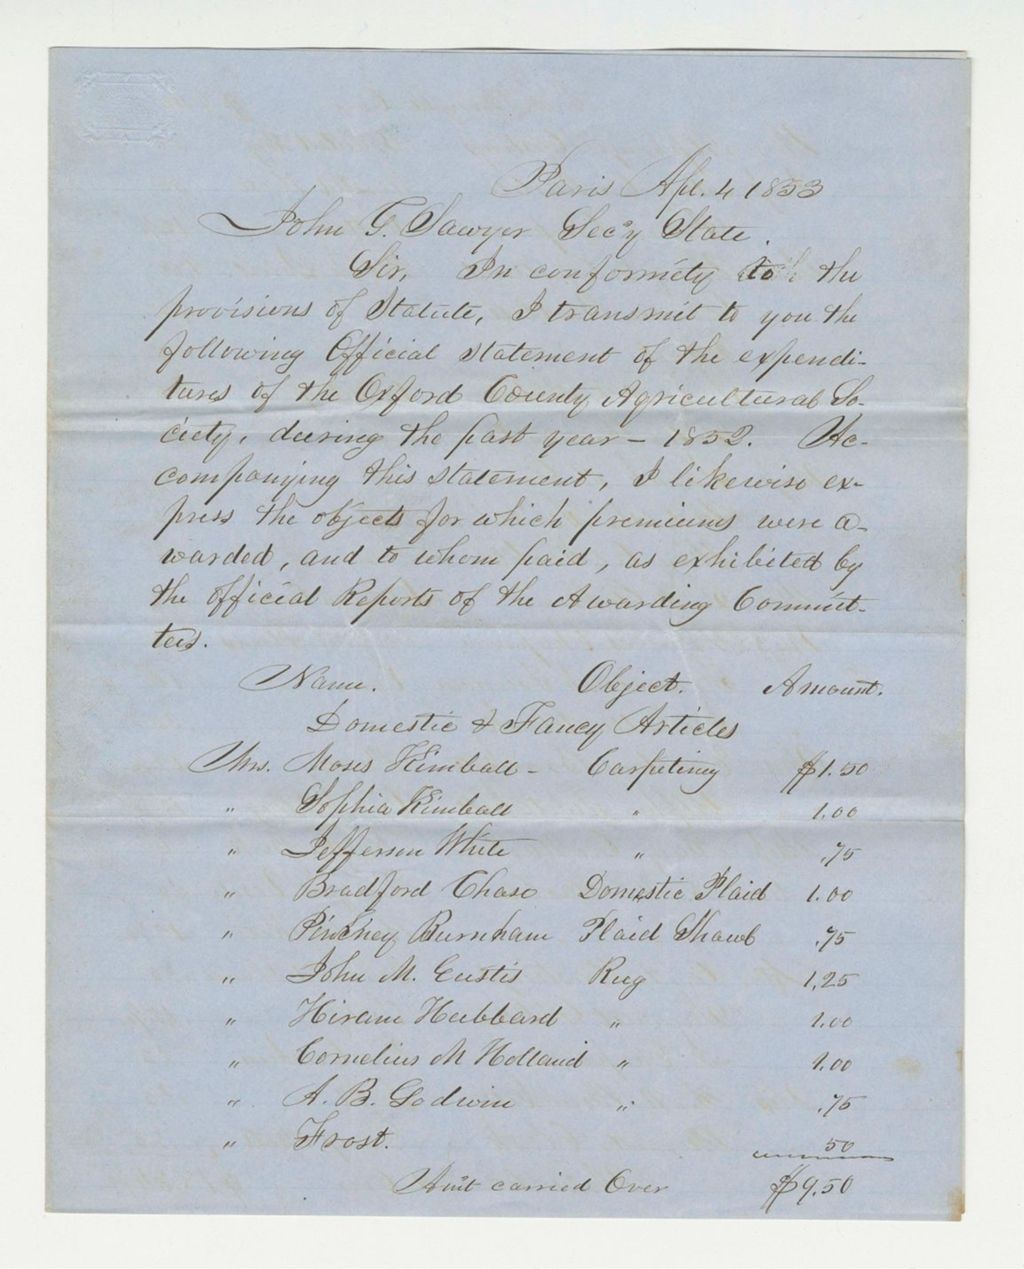 Paris Apl. 4 1853
John G. Sawyer Sec'y State.
Sir, In conformity to the
provisions of Statute, I transmit to you the
following Official statement of the expendi-
tures of the Oxford County Agricultural So-
ciety, during the past year - 1852. Ac-
companying this statement, I likewise ex-
press the objects for which premiums were a-
warded, and to whom paid, as exhibited by
the official Reports of the Awarding Commit-
tees.
Name. Object. Amount.
Domestic & Fancy Articles
Mrs. Moses Kimball - Carpeting $1.50
" Sophia Kimball " 1.00
" Jefferson White " .75
" Bradford Chase Domestic Plaid 1.00
" Pinckney Burnham Plaid Shawl .75
" John M. Eustis Rug 1,25
" Hiram Hubbard " 1.00
" Cornelius M Holland " 1.00
" A. B. Godwin " .75
" Frost. 50
Am't carried Over $9.50